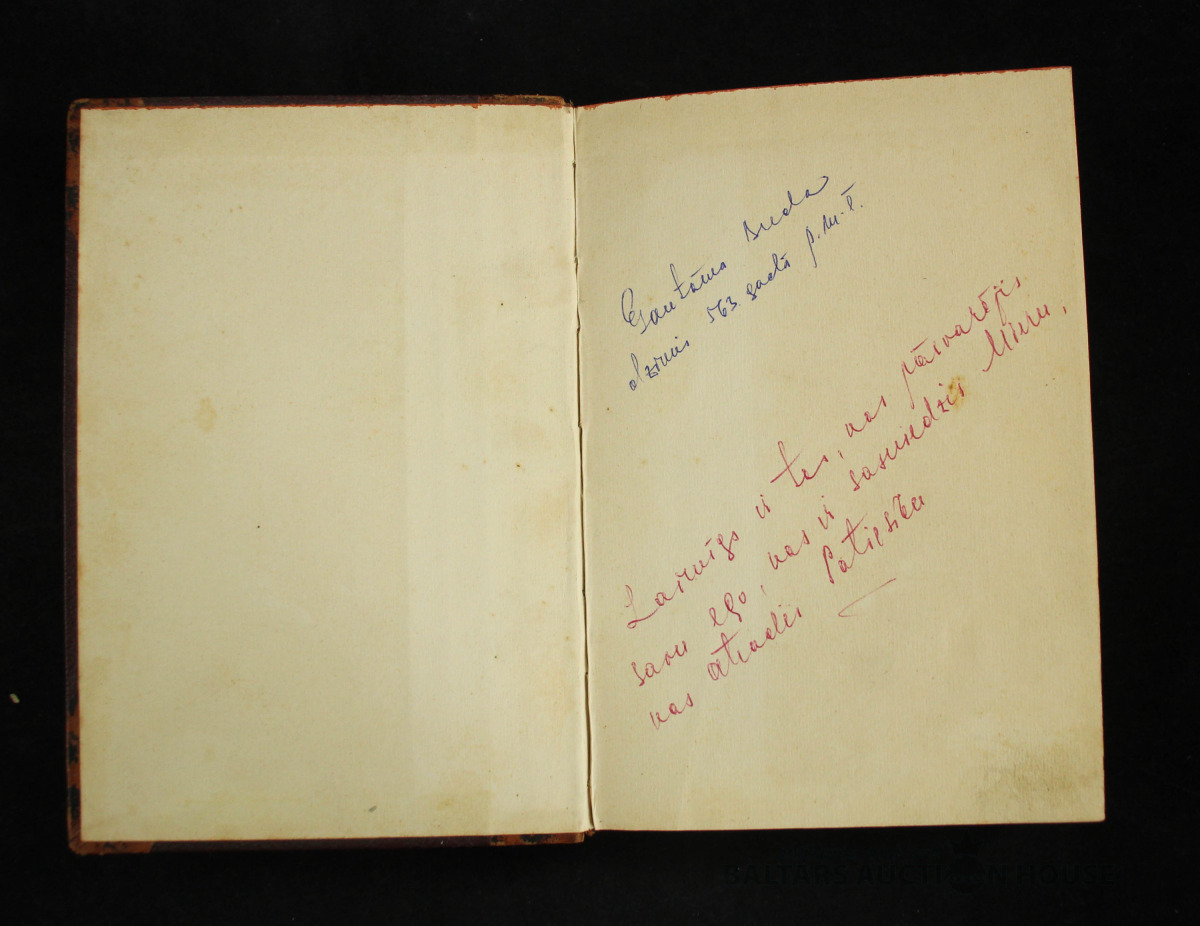 Gautāma Buda
dzimis 563. gadā p.m.ē.
Laimīgs ir tas, kas pārvarējis
savu ego, kas ir sasniedzis Mieru,
kas atradis Patiesību
BALTARS AUCTION HOUSE